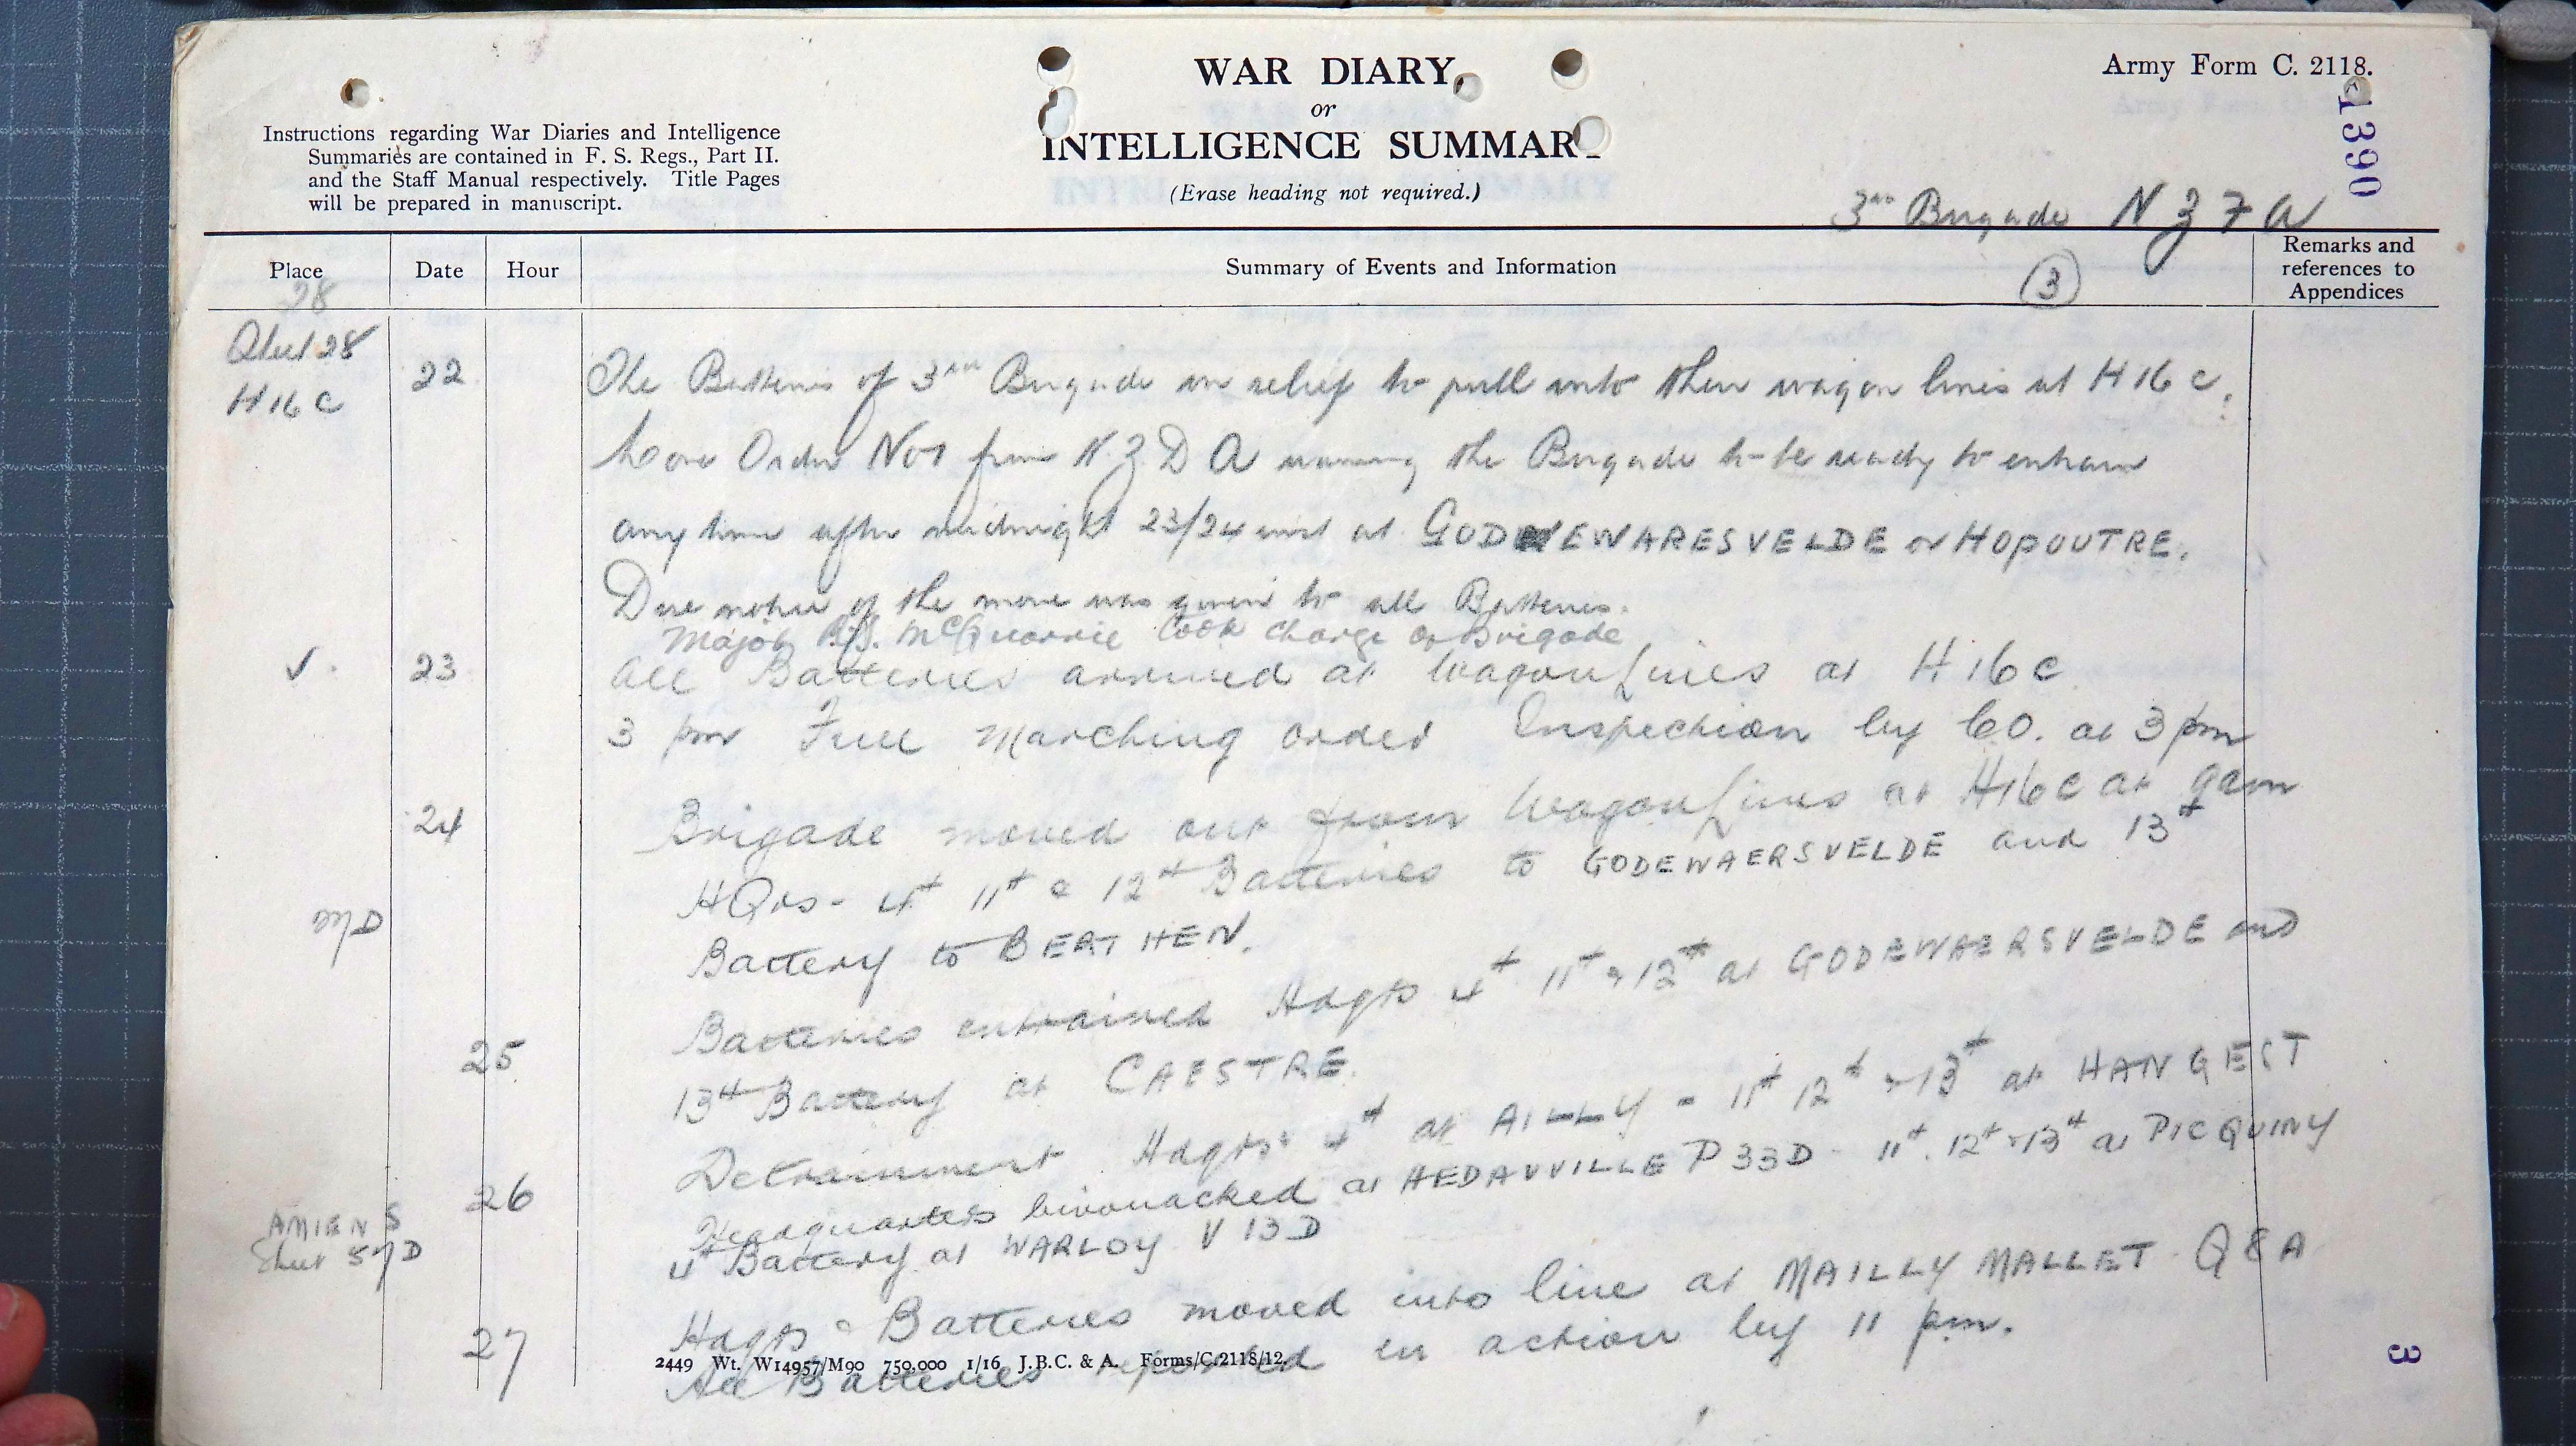 Army Form C. 2118.
1390
WAR DIARY
or
INTELLIGENCE SUMMAR
(Erase heading not required.)
Instructions regarding War Diaries and Intelligence
Summaries are contained in F. S. Regs., Part II.
and the Staff Manual respectively. Title Pages
will be prepared in manuscript.
3rd Brigade N Z F A
Place
Date
Hour
Summary of Events and Information
Remarks and
references to
Appendices
3
28
Sheet 28
H 16 C
22
The Batteries of 3rd Brigade on relief to pull into their wagon lines at H 16 c.
Move Order No 1 from N.Z D A warning the Brigade to be ready to entrain
any time after midnight 23/24 inst at GODEWARESVELDE or HOPOUTRE.
Due notice of the move was given to all Batteries.
Major McQuarrie took charge of Brigade
23
All Batteries arrived at Wagon Lines at H 16 C
3 pm Full Marching order Inspection by CO. at 3 pm
24
Brigade moved out from Wagon Lines at H16C at 9am
HQrs - 4th 11th & 12th Batteries to GODEWAERSVELDE and 13th
Battery to BERTHEN.
Batteries entrained Hdqts 4th 11th & 12th at GODEWAERSVELDE and
25
13th Battery at CAESTRE.
Detrainment Hdqts & 4th at AILLY - 11th 12th & 13th at HANGEST
26
Headquarters bivouacked at HEDAUVILLE P 33D - 11th. 12th & 13th at PICQUINY
AMIENS
Sheet 57D
4th Battery at WARLOY V 13 D
27
Hdqts & Batteries moved into line at MAILLY MALLET Q 8 A
All Batteries reported in action by 11 pm.
2449 Wt. W14957/M90 750,000 1/16 J.B.C. & A. Forms/C.2118/12.
3